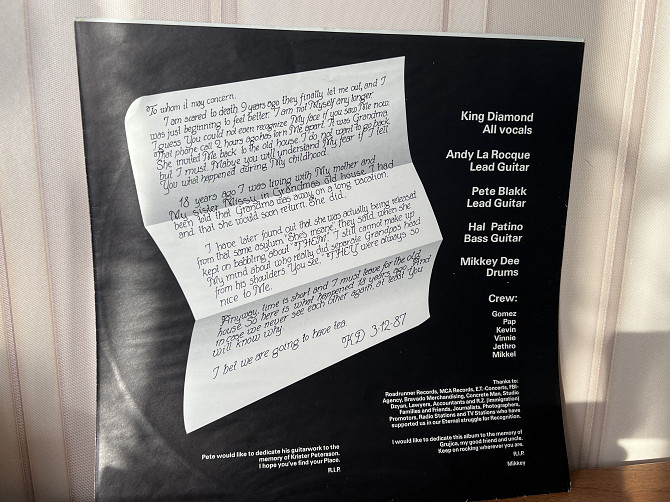 To whom it may concern.
I am scared to death. 9 years ago they finally let me out, and I
was just beginning to feel better. I am not Myself any longer.
I guess You could not even recognize My face if you saw Me now.
That phone call 2 hours ago has torn Me apart. It was Grandma.
She invited Me back to the old house I do not want to go back,
but I must. Mabye you will understand My fear if I tell
You what happened during My childhood.
18 years ago I was living with My mother and
My sister Missy in Grandmas old house. I had
been told that Grandma was away on a long vacation,
and that she would soon return. She did.
I have later found out that she was actually being released
from that some asylum. She's insane, they said, when she
kept on babbling about "THEM". I still cannot make up
My mind about who really did separate Grandpas head
from his shoulders. You see, "THEY" were always so
nice to Me.
Anyway, time is short and I must leave for the old
house. So here is what happened 18 years ago. And
in case we never see each other again, at least You
will know why.
I bet we are going to have tea.
KD 3-12-87
King Diamond
All vocals
Andy La Rocque
Lead Guitar
Pete Blakk
Lead Guitar
Hal Patino
Bass Guitar
Mikkey Dee
Drums
Crew:
Gomez
Pap
Kevin
Vinnie
Jethro
Mikkel
Thanks to:
Roadrunner Records, MCA Records, E.T.-Concerts, FBI-
Agency, Bravado Merchandising, Concrete Man, Studio
Dzyan, Lawyers, Accountants and R.Z. (Immigration)
Families and Friends, Journalists, Photographers,
Promotors, Radio Stations and TV Stations who have
supported us in our Eternal struggle for Recognition.
I would like to dedicate this album to the memory of
Grujica, my good friend and uncle.
Keep on rocking wherever you are.
R.I.P.
Mikkey
Pete would like to dedicate his guitarwork to the
memory of Krister Petersson.
I hope you've find your Place.
R.I.P.